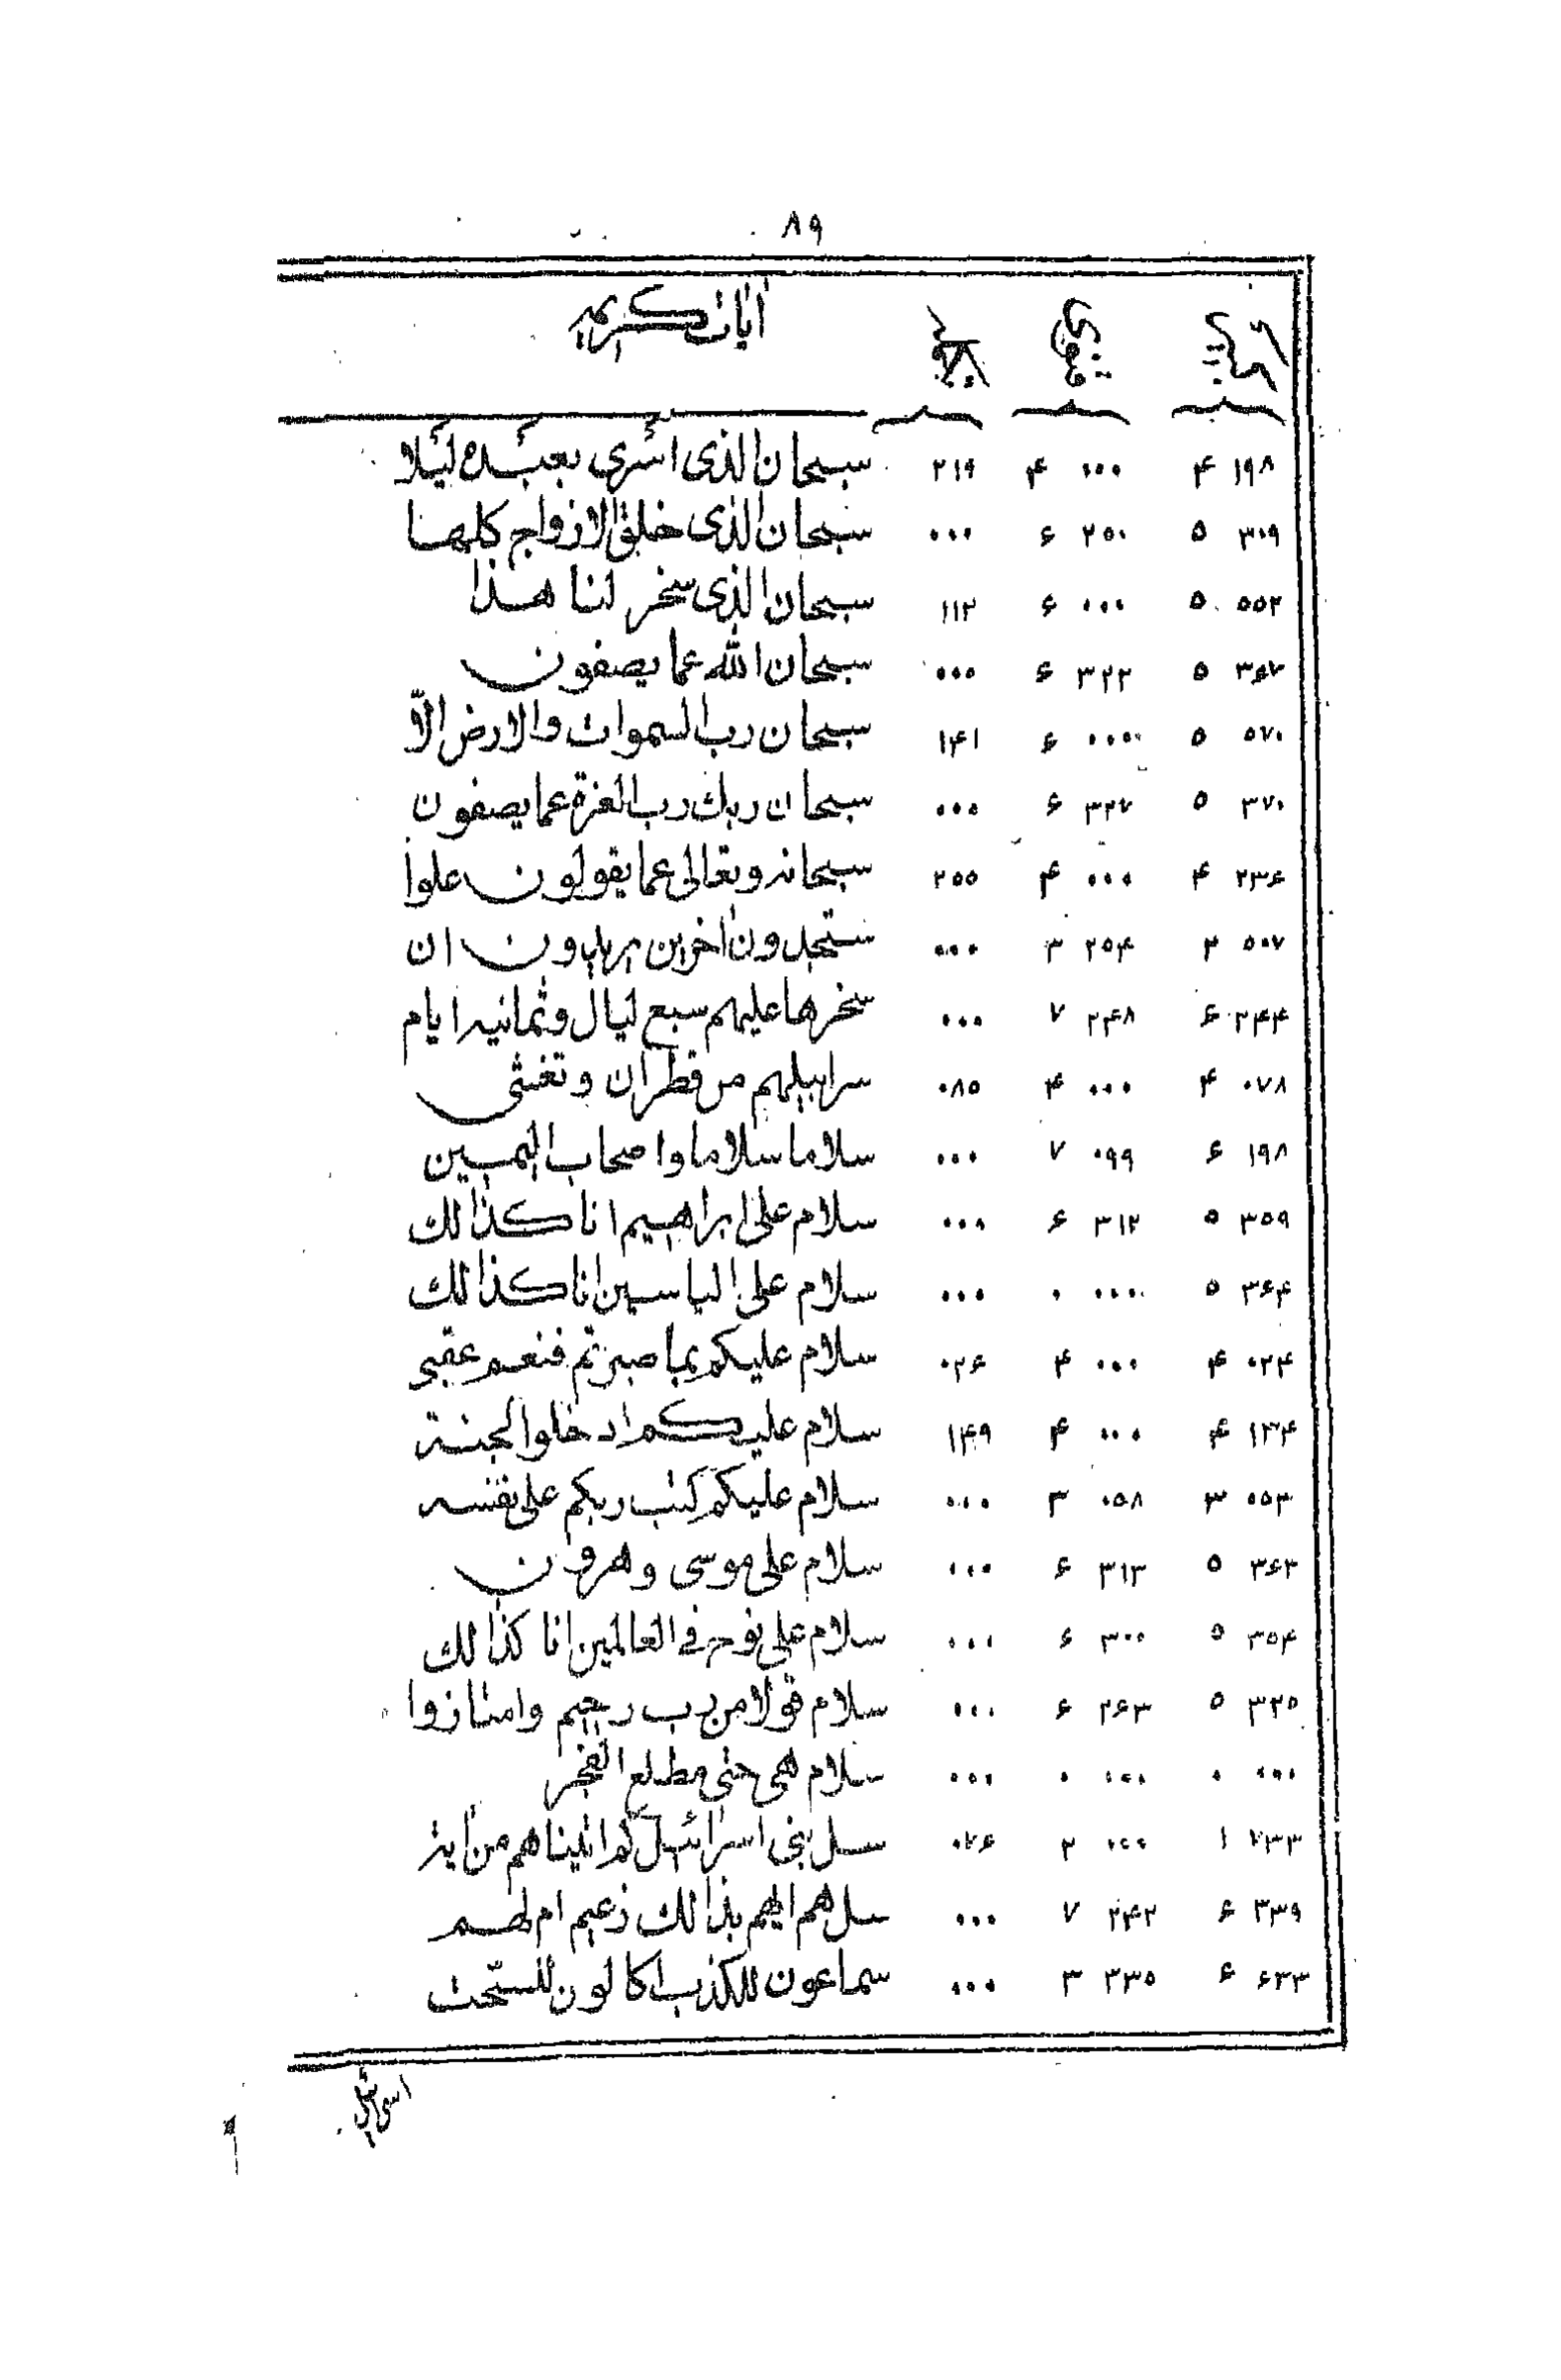 ۸۹
آیات کریمه
۱۹۸ ۴ ۰۰۰ ۴ ۲۱۹ سبحان الذی اسری بعبده لیلا
۳۰۹ ۵ ۲۵۰ ۶ ۰۰۰ سبحان الذی خلق الازواج کلها
۵۵۲ ۵ ۰۰۰ ۶ ۱۱۲ سبحان الذی سخر لنا هذا
۳۶۷ ۵ ۳۲۲ ۶ ۰۰۰ سبحان الله عما یصفون
۵۷۰ ۵ ۰۰۰ ۶ ۱۴۱ سبحان رب السموات والارض الّا
۳۷۰ ۵ ۳۲۷ ۶ ۰۰۰ سبحان ربك رب العزة عما یصفون
۲۳۶ ۴ ۰۰۰ ۴ ۲۵۵ سبحانه وتعالی عما یقولون علوا
۵۰۷ ۲ ۲۵۴ ۳ ۰۰۰ ستجدون اخرین یریدون ان
۲۴۴ ۶ ۲۴۸ ۷ ۰۰۰ سخرها علیهم سبع لیال وثمانیه ایام
۰۷۸ ۴ ۰۰۰ ۴ ۰۸۵ سرابیلهم من قطران وتغشی
۱۹۸ ۶ ۰۹۹ ۷ ۰۰۰ سلاما سلاما واصحاب الیمین
۳۵۹ ۵ ۳۱۲ ۶ ۰۰۰ سلام علی ابراهیم انا کذالك
۳۶۴ ۵ ۰۰۰ ۰ ۰۰۰ سلام علی الیاسین انا کذالك
۰۲۴ ۴ ۰۰۰ ۴ ۰۲۶ سلام علیکم بما صبرتم فنعم عقبی
۱۳۴ ۴ ۰۰۰ ۴ ۱۴۹ سلام علیکم ادخلوا الجنة
۰۵۳ ۳ ۰۵۸ ۳ ۰۰۰ سلام علیکم کتب ربکم علی نفسه
۳۶۳ ۵ ۳۱۳ ۶ ۰۰۰ سلام علی موسی وهرون
۳۵۴ ۵ ۳۰۰ ۶ ۰۰۰ سلام علی نوح فی العالمین انا کذالك
۳۲۵ ۵ ۲۶۳ ۶ ۰۰۰ سلام قولا من رب رحیم وامتازوا
۰۰۰ ۰ ۰۰۰ ۰ ۰۰۰ سلام هی حتی مطلع الفجر
۲۳۳ ۱ ۰۰۰ ۲ ۰۷۶ سل بنی اسرائیل کم اتیناهم من ایة
۳۳۹ ۶ ۲۴۲ ۷ ۰۰۰ سلهم ایهم بذالك زعیم ام لهم
۶۳۳ ۶ ۳۳۵ ۳ ۰۰۰ سماعون للکذب اکالون للسحت